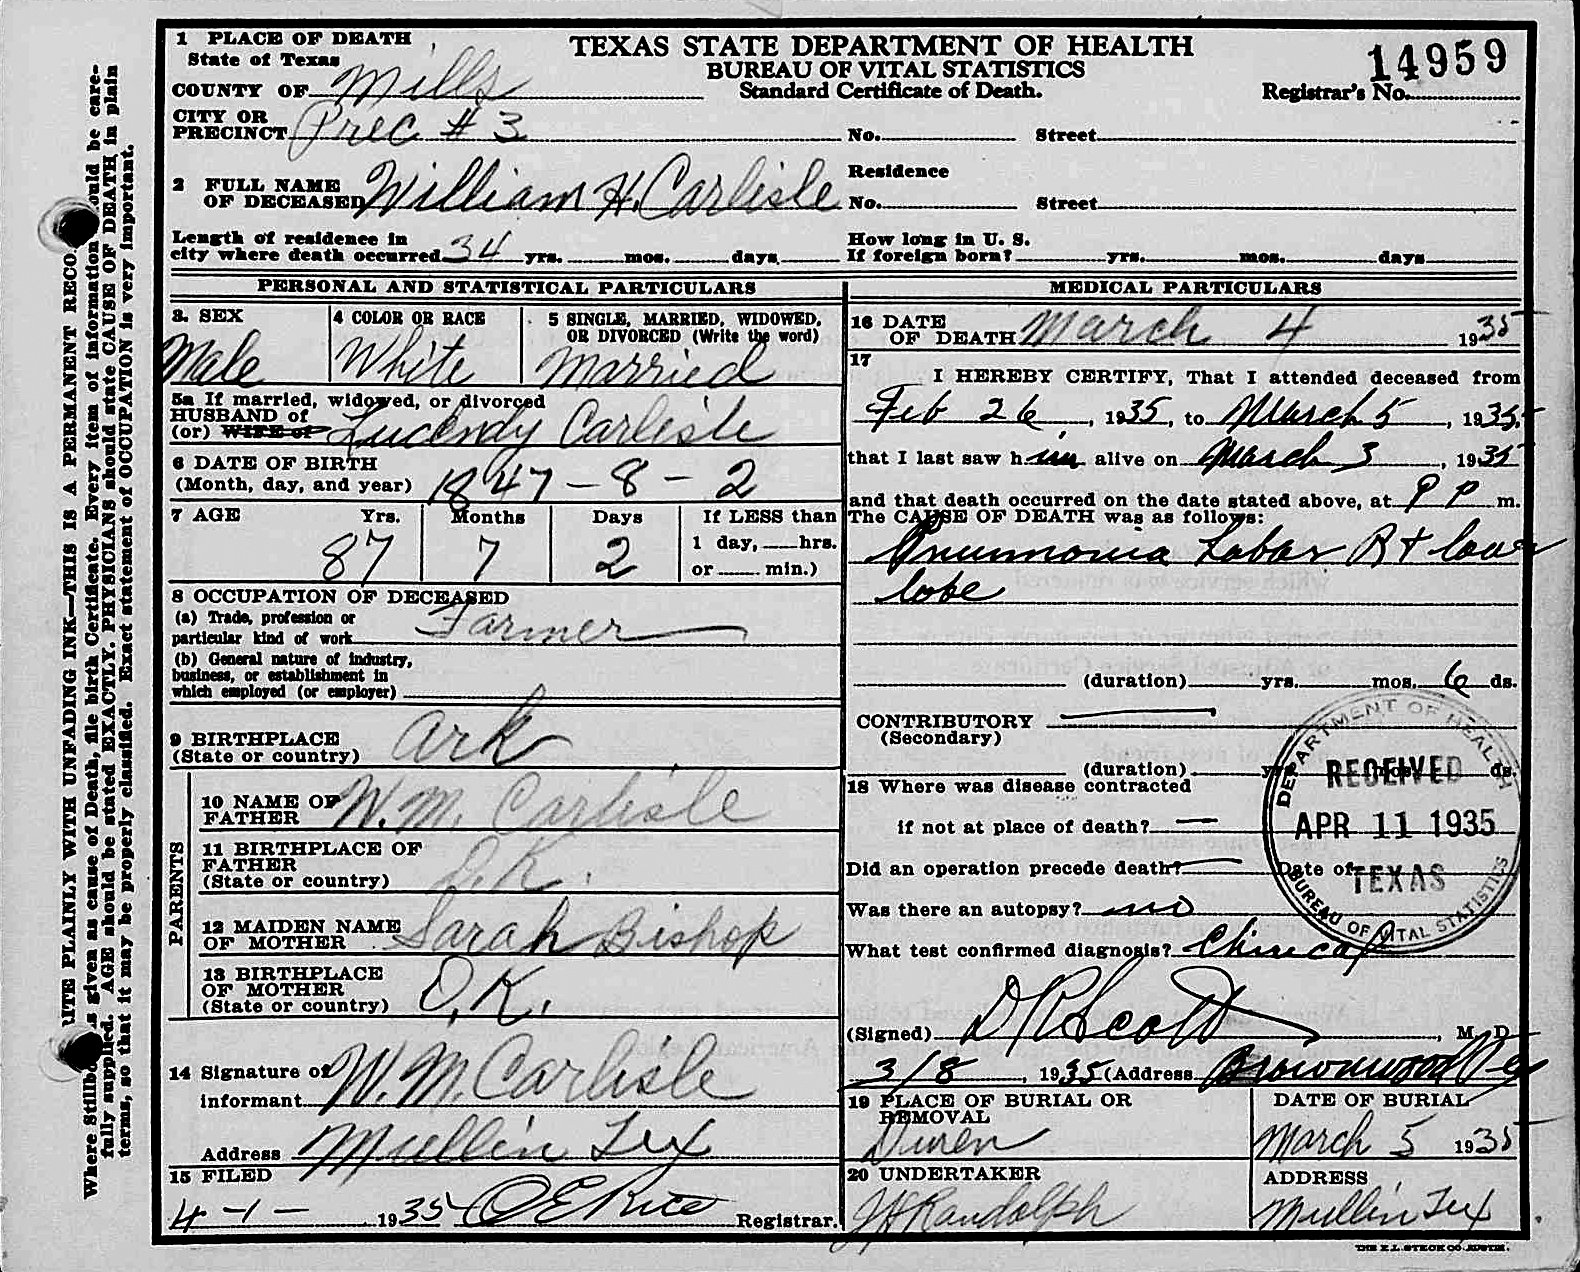 TEXAS STATE DEPARTMENT OF HEALTH
BUREAU OF VITAL STATISTICS
Standard Certificate of Death.
14959
Registrar's No.
1 PLACE OF DEATH
State of Texas
COUNTY OF Mills
CITY OR
PRECINCT Prec # 3 No. Street
2 FULL NAME
OF DECEASED William H. Carlisle
Residence
No. Street
Length of residence in
city where death occurred 34 yrs. mos. days
How long in U. S.
If foreign born? yrs. mos. days
PERSONAL AND STATISTICAL PARTICULARS
3. SEX
Male
4 COLOR OR RACE
White
5 SINGLE, MARRIED, WIDOWED,
OR DIVORCED (Write the word)
Married
5a If married, widowed, or divorced
HUSBAND of
(or) WIFE of Lucendy Carlisle
6 DATE OF BIRTH
(Month, day, and year) 1847 - 8 - 2
7 AGE Yrs. Months Days If LESS than
87 7 2 1 day, hrs.
or min.)
8 OCCUPATION OF DECEASED
(a) Trade, profession or
particular kind of work Farmer
(b) General nature of industry,
business, or establishment in
which employed (or employer)
9 BIRTHPLACE
(State or country) Ark
PARENTS
10 NAME OF
FATHER W. M. Carlisle
11 BIRTHPLACE OF
FATHER
(State or country) D.K.
12 MAIDEN NAME
OF MOTHER Sarah Bishop
13 BIRTHPLACE
OF MOTHER
(State or country) D.K.
14 Signature of
informant W. M. Carlisle
Address Mullin Tex
15 FILED
4 - 1 - 1935 O E Rice Registrar.
MEDICAL PARTICULARS
16 DATE
OF DEATH March 4 1935
17
I HEREBY CERTIFY, That I attended deceased from
Feb 26, 1935, to March 5, 1935.
that I last saw him alive on March 3, 1935
and that death occurred on the date stated above, at 9 P m.
The CAUSE OF DEATH was as follows:
Pneumonia Lobar Rt lower
lobe
(duration) yrs. mos. 6 ds.
CONTRIBUTORY
(Secondary)
(duration) yrs. mos. ds.
18 Where was disease contracted
if not at place of death?
Did an operation precede death? Date of
Was there an autopsy? no
What test confirmed diagnosis? Clinical
(Signed) D R Scott, M. D.
3/8, 1935 (Address Brownwood Tex
19 PLACE OF BURIAL OR
REMOVAL
Duren
DATE OF BURIAL
March 5 1935
20 UNDERTAKER
J H Randolph
ADDRESS
Mullin Tex
DEPARTMENT OF HEALTH
RECEIVED
APR 11 1935
TEXAS
BUREAU OF VITAL STATISTICS
THE E.L. STECK CO. AUSTIN.
RITE PLAINLY WITH UNFADING INK—THIS IS A PERMANENT RECO
Where Stillbo is given as cause of Death, file birth Certificate. Every item of information should be care-
fully supplied. AGE should be stated EXACTLY. PHYSICIANS should state CAUSE OF DEATH in plain
terms, so that it may be properly classified. Exact statement of OCCUPATION is very important.